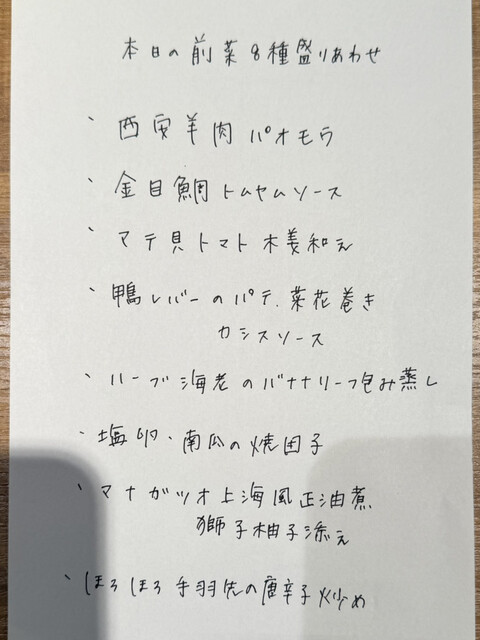 本日の前菜8種盛りあわせ
、西安羊肉パオモウ
、金目鯛トムヤムソース
、マテ貝トマト木姜和え
、鴨レバーのパテ、菜花巻き
カシスソース
、ハーブ海老のバナナリーフ包み蒸し
、塩卵、南瓜の焼団子
、マナガツオ上海風正油煮
獅子柚子添え
、ほろほろ手羽先の唐辛子炒め